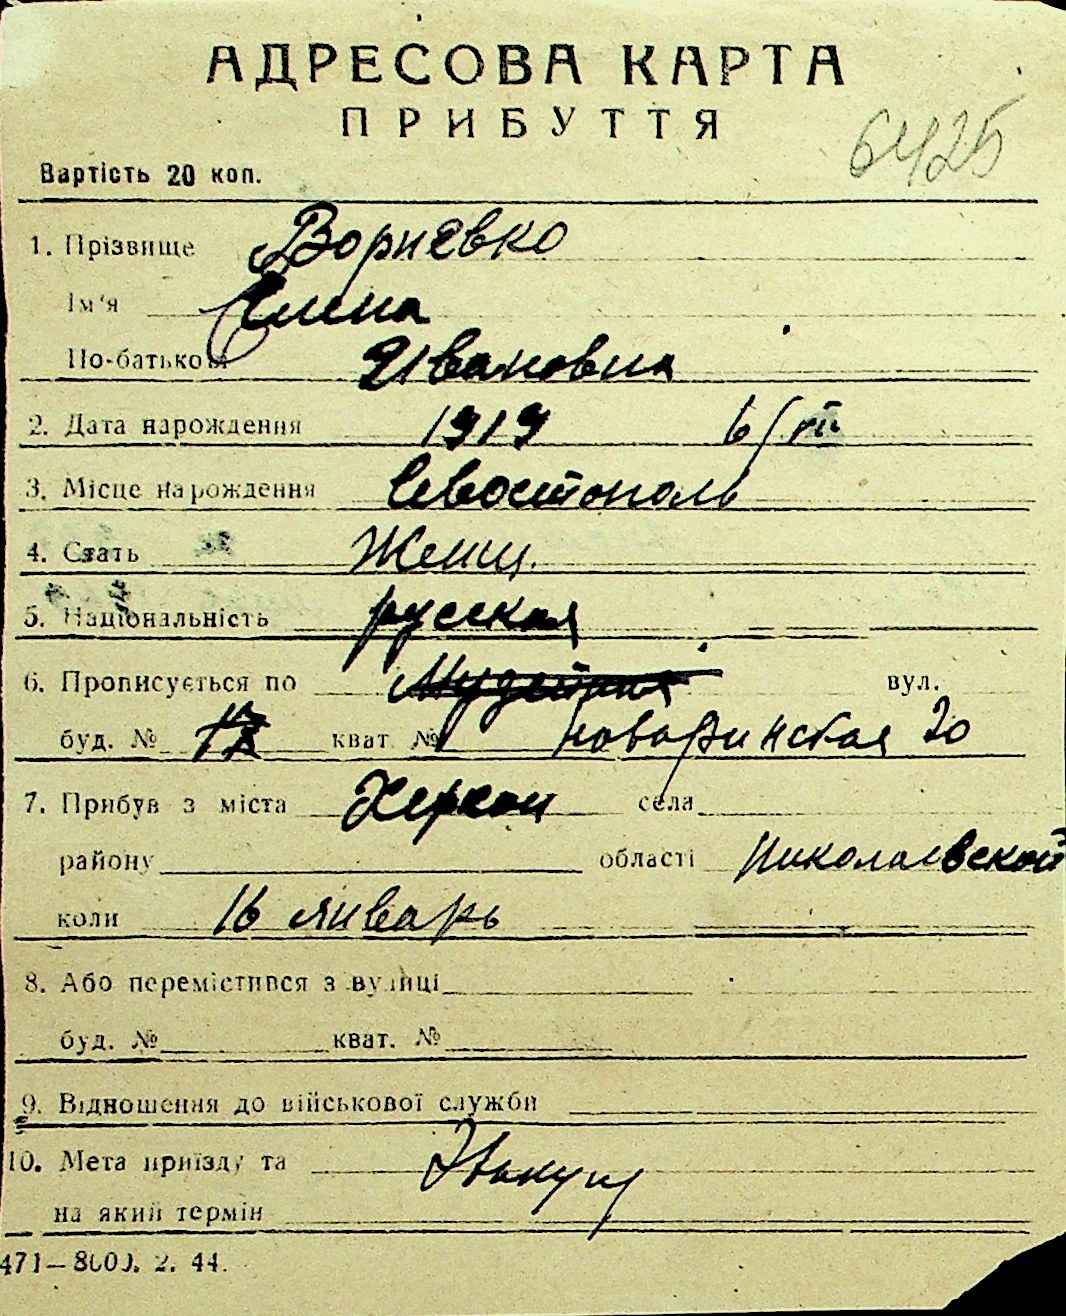 АДРЕСОВА КАРТА
ПРИБУТТЯ
6425
Вартість 20 коп.
1. Прізвище Ворневко
Ім'я Елена
По-батькові Ивановна
2. Дата народження 1919 6/VII
3. Місце народження Севостополь
4. Стать Женщ.
5. Національність русская
6. Прописується по вул.
буд. № кват. №
7. Прибув з міста Херсон села
району області Николаевской
коли 16 январь
8. Або перемістився з вулиці
буд. № кват. №
9. Відношення до військової служби
10. Мета приїзду та Эвакуц
на який термін
471—8000. 2. 44.